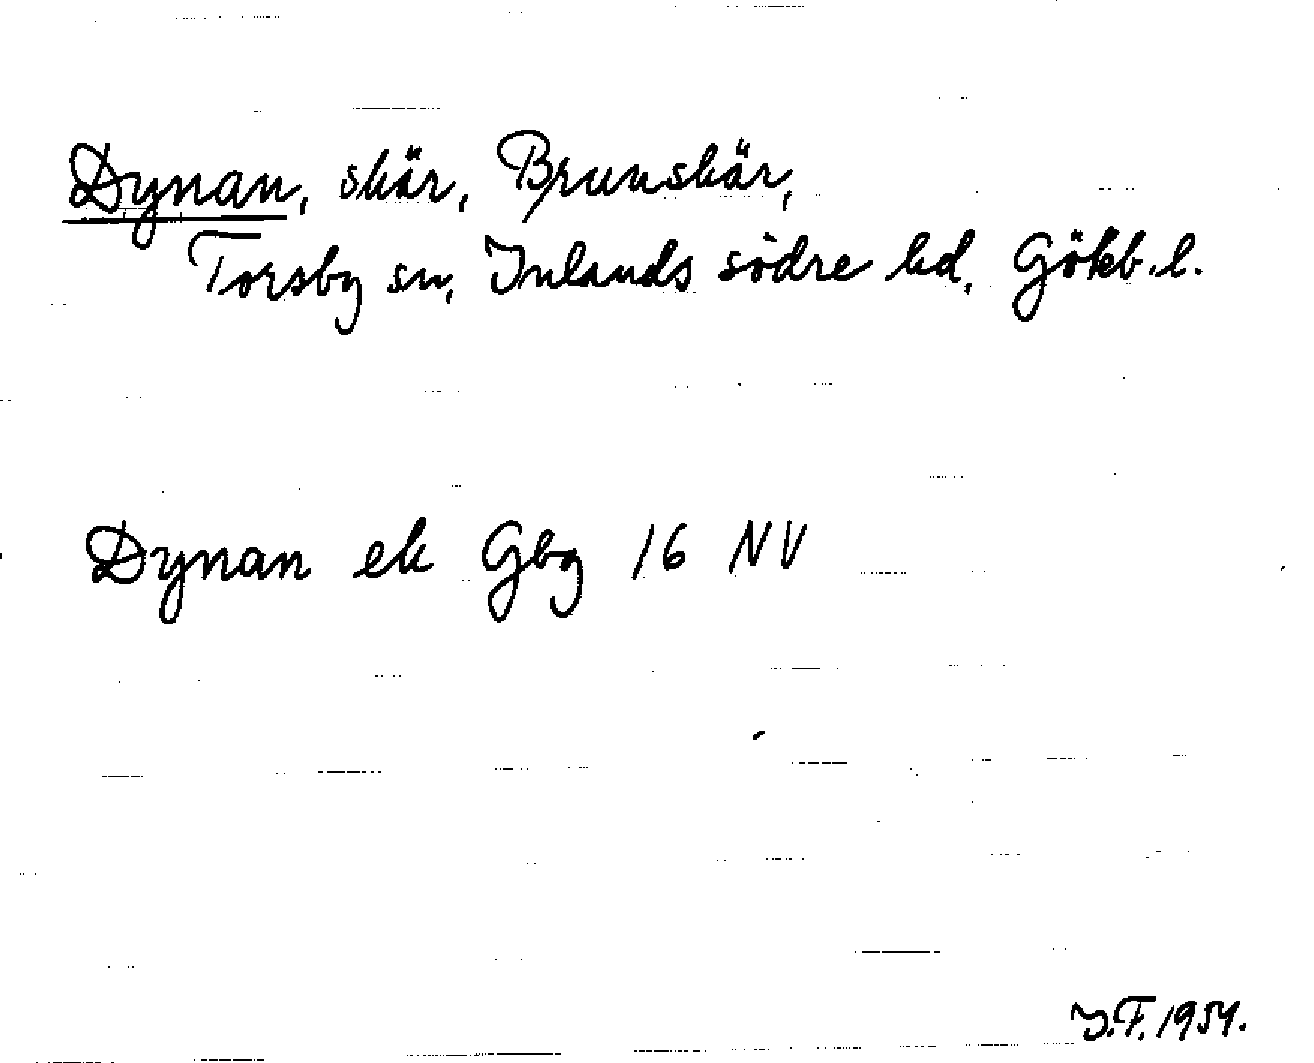 Dynan, skär, Brunskär,
Torsby sn, Inlands södre hd, Gökb. l.
Dynan ek Gbg 16 NV
J.F. 1954.